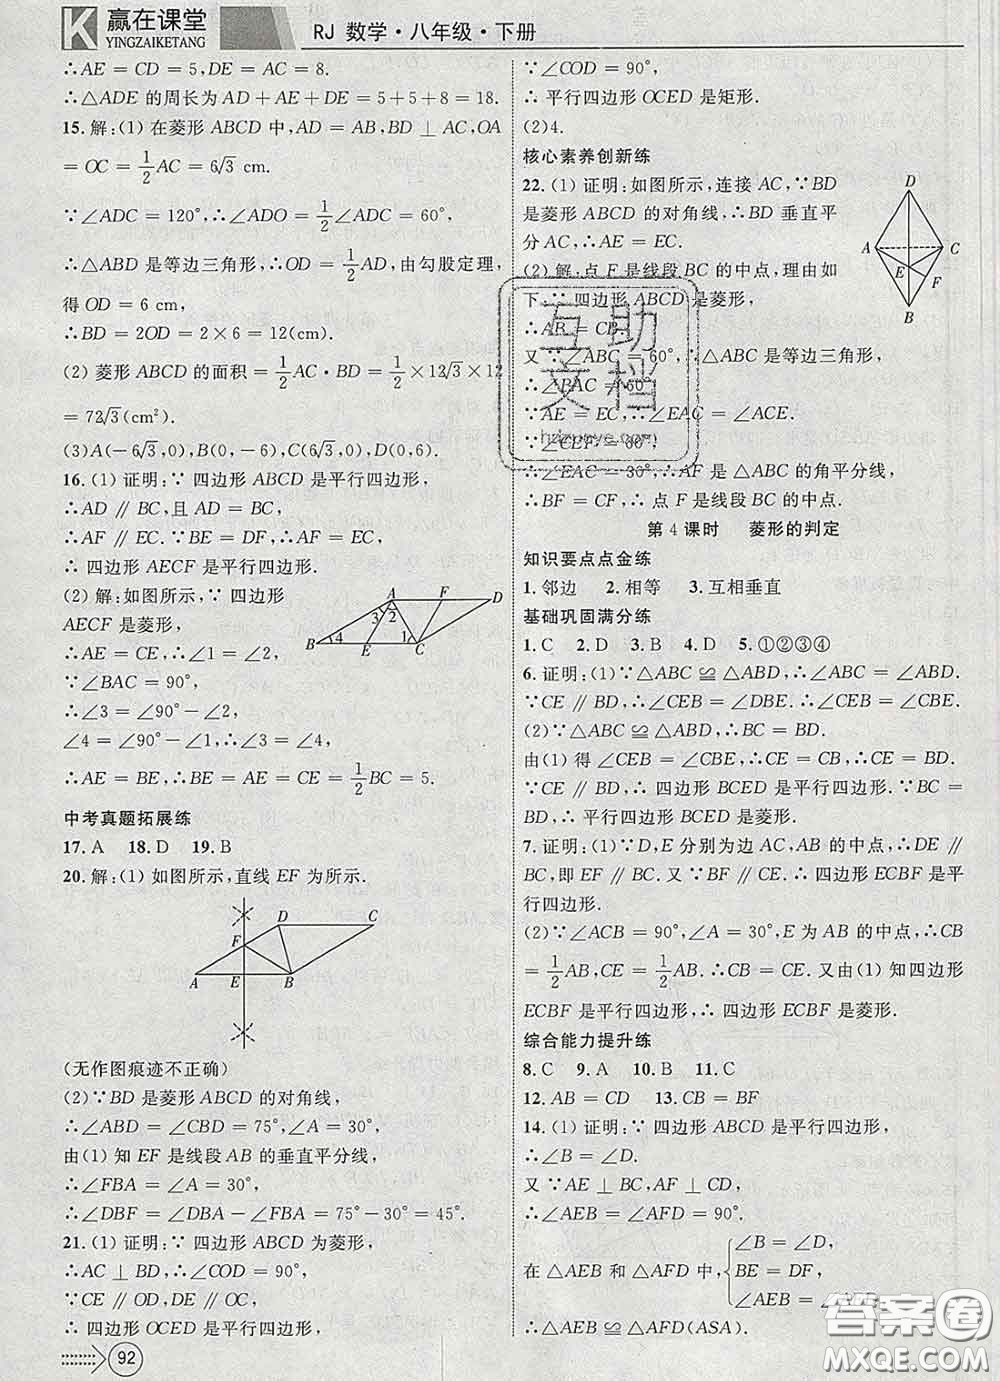 赢在课堂
YINGZAIKETANG
RJ 数学·八年级·下册
∴AE=CD=5,DE=AC=8.
∴△ADE 的周长为 AD+AE+DE=5+5+8=18.
15.解:(1) 在菱形 ABCD 中,AD=AB,BD⊥AC,OA
=OC=1/2AC=6√3 cm.
∵∠ADC=120°,∴∠ADO=1/2∠ADC=60°,
∴△ABD 是等边三角形,∴OD=1/2AD,由勾股定理,
得 OD=6 cm,
∴BD=2OD=2×6=12(cm).
(2) 菱形 ABCD 的面积=1/2AC·BD=1/2×12√3×12
=72√3(cm²).
(3)A(-6√3,0),B(0,-6),C(6√3,0),D(0,6).
16.(1) 证明:∵ 四边形 ABCD 是平行四边形,
∴AD∥BC,且 AD=BC,
∴AF∥EC.∵BE=DF,∴AF=EC,
∴ 四边形 AECF 是平行四边形.
(2) 解:如图所示,∵ 四边形
AECF 是菱形,
∴AE=CE,∴∠1=∠2,
∵∠BAC=90°,
∴∠3=∠90°-∠2,
∠4=∠90°-∠1,∴∠3=∠4,
∴AE=BE,∴BE=AE=CE=1/2BC=5.
A F D
3 2
B 4 1
E C
中考真题拓展练
17.A 18.D 19.B
20.解:(1) 如图所示,直线 EF 为所示.
D C
F
A E B
(无作图痕迹不正确)
(2)∵BD 是菱形 ABCD 的对角线,
∴∠ABD=∠CBD=75°,∠A=30°,
由(1) 知 EF 是线段 AB 的垂直平分线,
∴∠FBA=∠A=30°,
∴∠DBF=∠DBA-∠FBA=75°-30°=45°.
21.(1) 证明:∵ 四边形 ABCD 为菱形,
∴AC⊥BD,∴∠COD=90°,
∵CE∥OD,DE∥OC,
∴ 四边形 OCED 是平行四边形,
92
∵∠COD=90°,
∴ 平行四边形 OCED 是矩形.
(2)4.
核心素养创新练
22.(1) 证明:如图所示,连接 AC,∵BD
是菱形 ABCD 的对角线,∴BD 垂直平
分 AC,∴AE=EC.
(2) 解:点 F 是线段 BC 的中点,理由如
下:∵ 四边形 ABCD 是菱形,
∴AB=CB.
又∵∠ABC=60°,∴△ABC 是等边三角形,
∴∠BAC=60°
∵AE=EC,∴∠EAC=∠ACE.
∵∠CEF=60°,
∴∠EAC=30°,∴AF 是△ABC 的角平分线,
∴BF=CF,∴ 点 F 是线段 BC 的中点.
D
A C
E F
B
互助
文档
第 4 课时 菱形的判定
知识要点点金练
1.邻边 2.相等 3.互相垂直
基础巩固满分练
1.C 2.D 3.B 4.D 5.①②③④
6.证明:(1)∵△ABC≌△ABD,∴∠ABC=∠ABD.
∵CE∥BD,∴∠CEB=∠DBE.∴∠CEB=∠CBE.
(2)∵△ABC≌△ABD,∴BC=BD.
由(1) 得∠CEB=∠CBE,∴CE=CB,∴CE=BD.
∵CE∥BD,∴ 四边形 BCED 是平行四边形.∵BC=
BD,∴ 平行四边形 BCED 是菱形.
7.证明:(1)∵D,E 分别为边 AC,AB 的中点,∴DE∥
BC,即 EF∥BC.又∵BF∥CE,∴ 四边形 ECBF 是平
行四边形.
(2)∵∠ACB=90°,∠A=30°,E 为 AB 的中点,∴CB
=1/2AB,CE=1/2AB,∴CB=CE.又由(1) 知四边形
ECBF 是平行四边形,∴ 四边形 ECBF 是菱形.
综合能力提升练
8.C 9.A 10.B 11.C
12.AB=CD 13.CB=BF
14.(1) 证明:∵ 四边形 ABCD 是平行四边形,
∴∠B=∠D.
又∵AE⊥BC,AF⊥CD,
∴∠AEB=∠AFD=90°.
在△AEB 和△AFD 中,{∠B=∠D,
BE=DF,
∠AEB=∠AFD,
∴△AEB≌△AFD(ASA).
答案圈
MXQE.COM